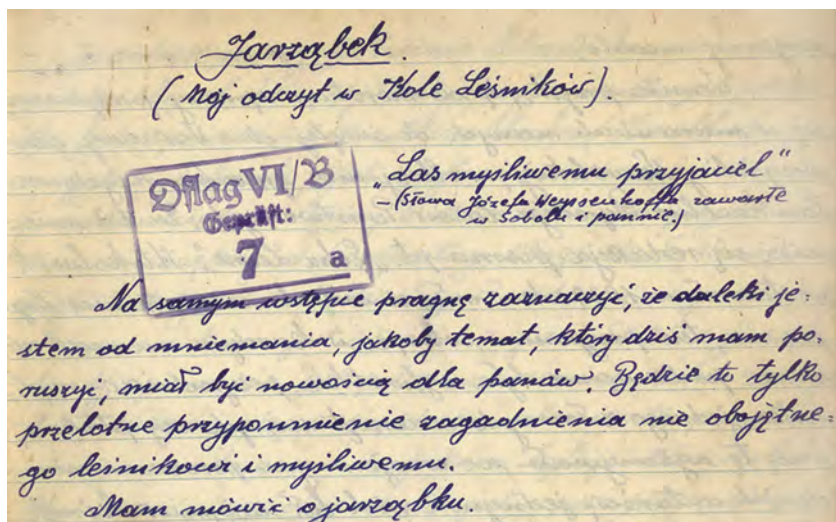 Jarząbek.
(Mój odczyt w Kole Leśników).
Oflag VI/B
Geprüft:
7 a
"Las myśliwemu przyjaciel"
- (Słowa Józefa Weyssenhoffa zawarte
w Sobolu i pannie.)
Na samym wstępie pragnę zaznaczyć, że daleki je-
stem od mniemania, jakoby temat, który dziś mam po-
ruszyć, miał być nowością dla panów. Będzie to tylko
przelotne przypomnienie zagadnienia nie obojętne-
go leśnikowi i myśliwemu.
Mam mówić o jarząbku.